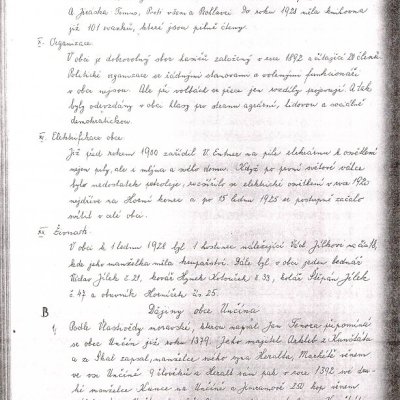 A Jiráska Temno, Proti všem a Bratrstvo. Do roku 1928 měla knihovna
již 101 svazků, které jsou pilně čteny.
X. Organizace
V obci je dobrovolný sbor hasičů založený v roce 1892 a čítající 20 členů.
Politické organizace se řádnými stanovami a volenými funkcionáři
v obci nejsou. Ale při volbách se přece jen rozdíly projevují. A tak
byly odevzdány v obci hlasy pro stranu agrární, lidovou a sociálně
demokratickou.
XI. Elektrifikace obce
Již před rokem 1900 zařídil V. Entner na pile elektrárnu k osvětlení
nejen pily, ale i mlýna a svého domu. Když po první světové válce
bylo nedostatek petroleje, rozšířilo se elektrické osvětlení v roce 1920
nejdříve na Horní konec a po 15 lednu 1925 se postupně začalo
svítit v celé obci.
XII. Živnosti
V obci k 1 lednu 1928 byl 1 hostinec náležející Vikt. Jílkovi na čís 16,
kde jeho manželka měla krupařství. Dále byl v obci jeden bednář
Václav Jílek č. 21, kovář Hynek Koloušek č. 33, kolář Štěpán Jílek
č. 47 a obuvník Horníček čís 25.
B Dějiny obce Unčína
Podle Vlastivědy moravské, kterou napsal Jan Tenora připomíná
se obec Unčín již roku 1379. Jeho majitel Archleb z Kunštátu
a ze Skal zapsal manželce svého syna Heralta, Markétě věnem
ve vsi Unčíně 9 člověků a Heralt sám pak v roce 1392 své druhé
manželce Kunce na Unčíně a Jimramově 250 kop věnem